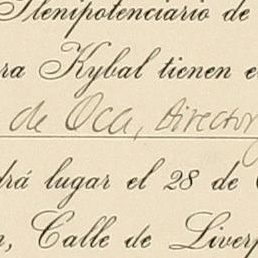 Plenipotenciario de
ra Kybal tienen e
de Oca, Director
drá lugar el 28 de
n, Calle de Liverp